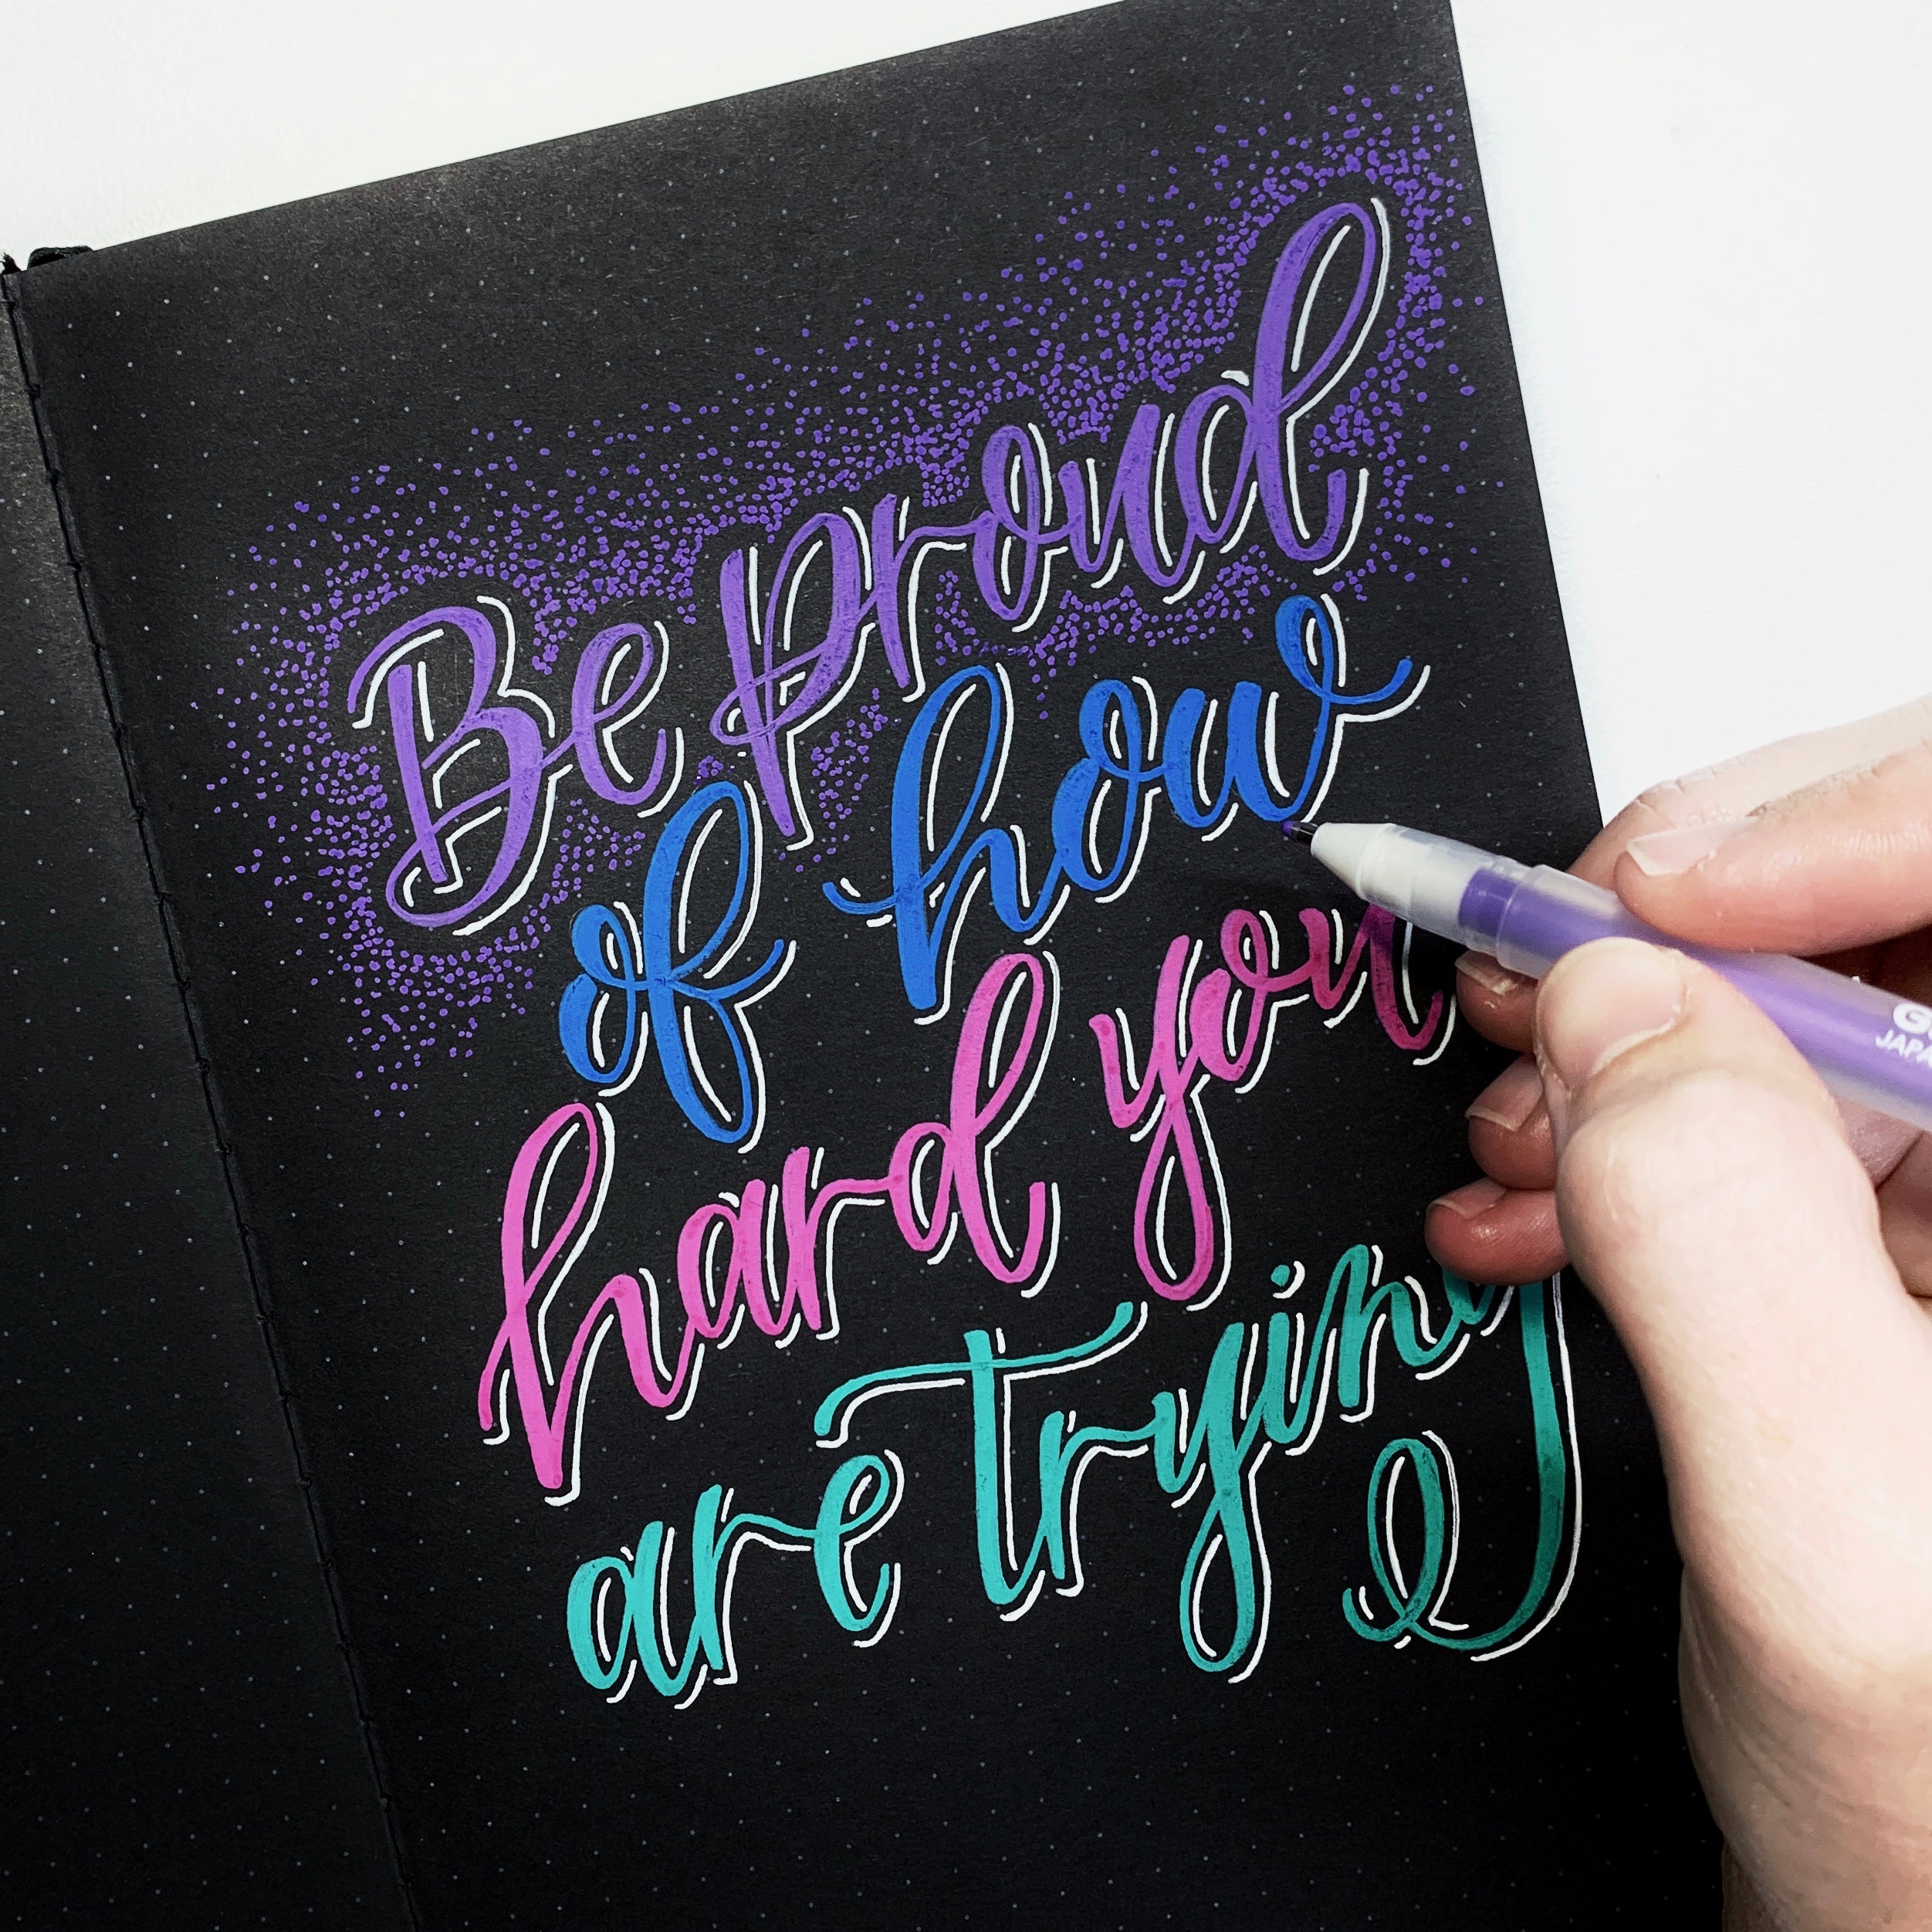 Be proud
of how
hard you
are trying